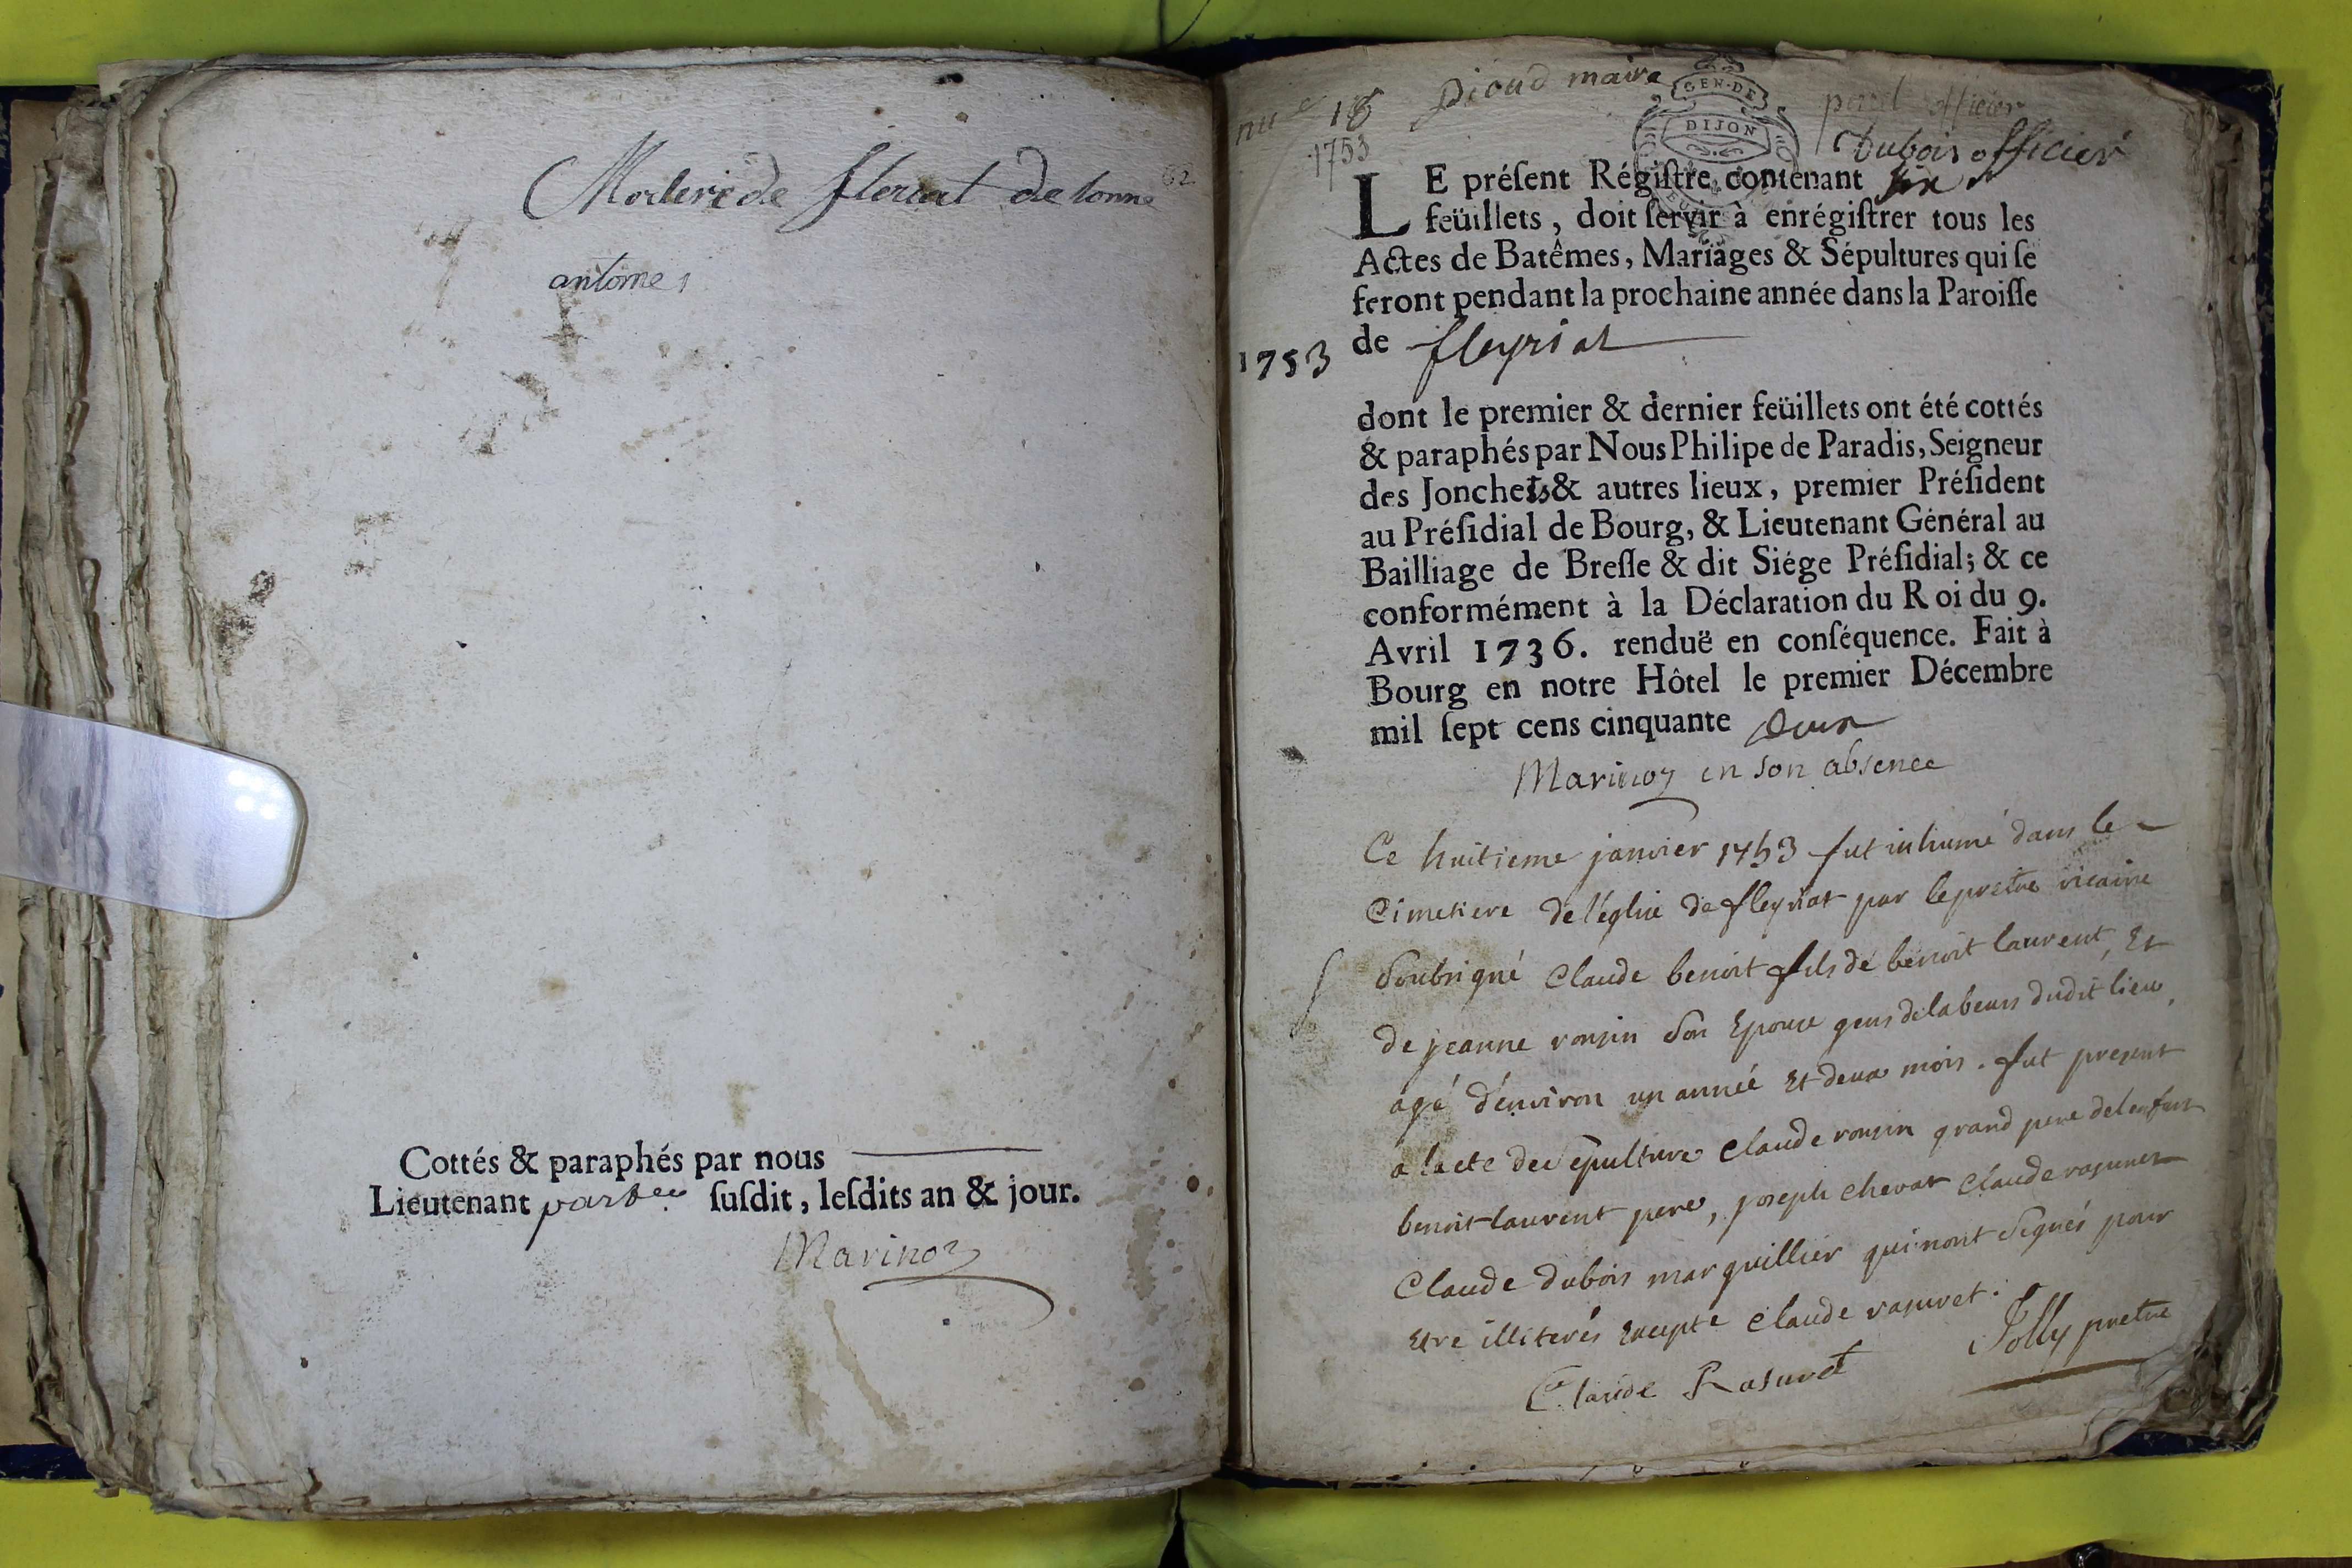 de
62
antome
Cottés & paraphés par nous
Lieutenant susdit, lesdits an & jour.
Marinoz
nu e 18 Dioud maire
1753
GEN. DE
DIJON
officier
Dubois officier
LE présent Régistre contenant six
feüillets, doit servir à enrégistrer tous les
Actes de Batêmes, Mariages & Sépultures qui se
feront pendant la prochaine année dans la Paroisse
de fleyriat
1753
dont le premier & dernier feüillets ont été cottés
& paraphés par Nous Philipe de Paradis, Seigneur
des Jonchets & autres lieux, premier Président
au Présidial de Bourg, & Lieutenant Général au
Bailliage de Bresse & dit Siége Présidial; & ce
conformément à la Déclaration du Roi du 9.
Avril 1736. renduë en conséquence. Fait à
Bourg en notre Hôtel le premier Décembre
mil sept cens cinquante deux
Marinoz en son absence
Ce huitieme janvier 1753 fut inhumé dans le
Cimetiere de l'église de fleyriat par le pretre vicaire
Soubsigné Claude benoit fils de benoit laurent, Et
de jeanne ronzin Son Epouse gens de labeurs dudit lieu,
agé d'environ un année Et deux mois. fut present
a lacte de sepulture Claude ronzin grand pere de lenfant
benoit laurent pere, joseph chevat Claude rasuret
Claude dubois marguillier qui nont Signés pour
Etre illiterés Excepté Claude rasuret.
Claude Rasuret Jolly pretre